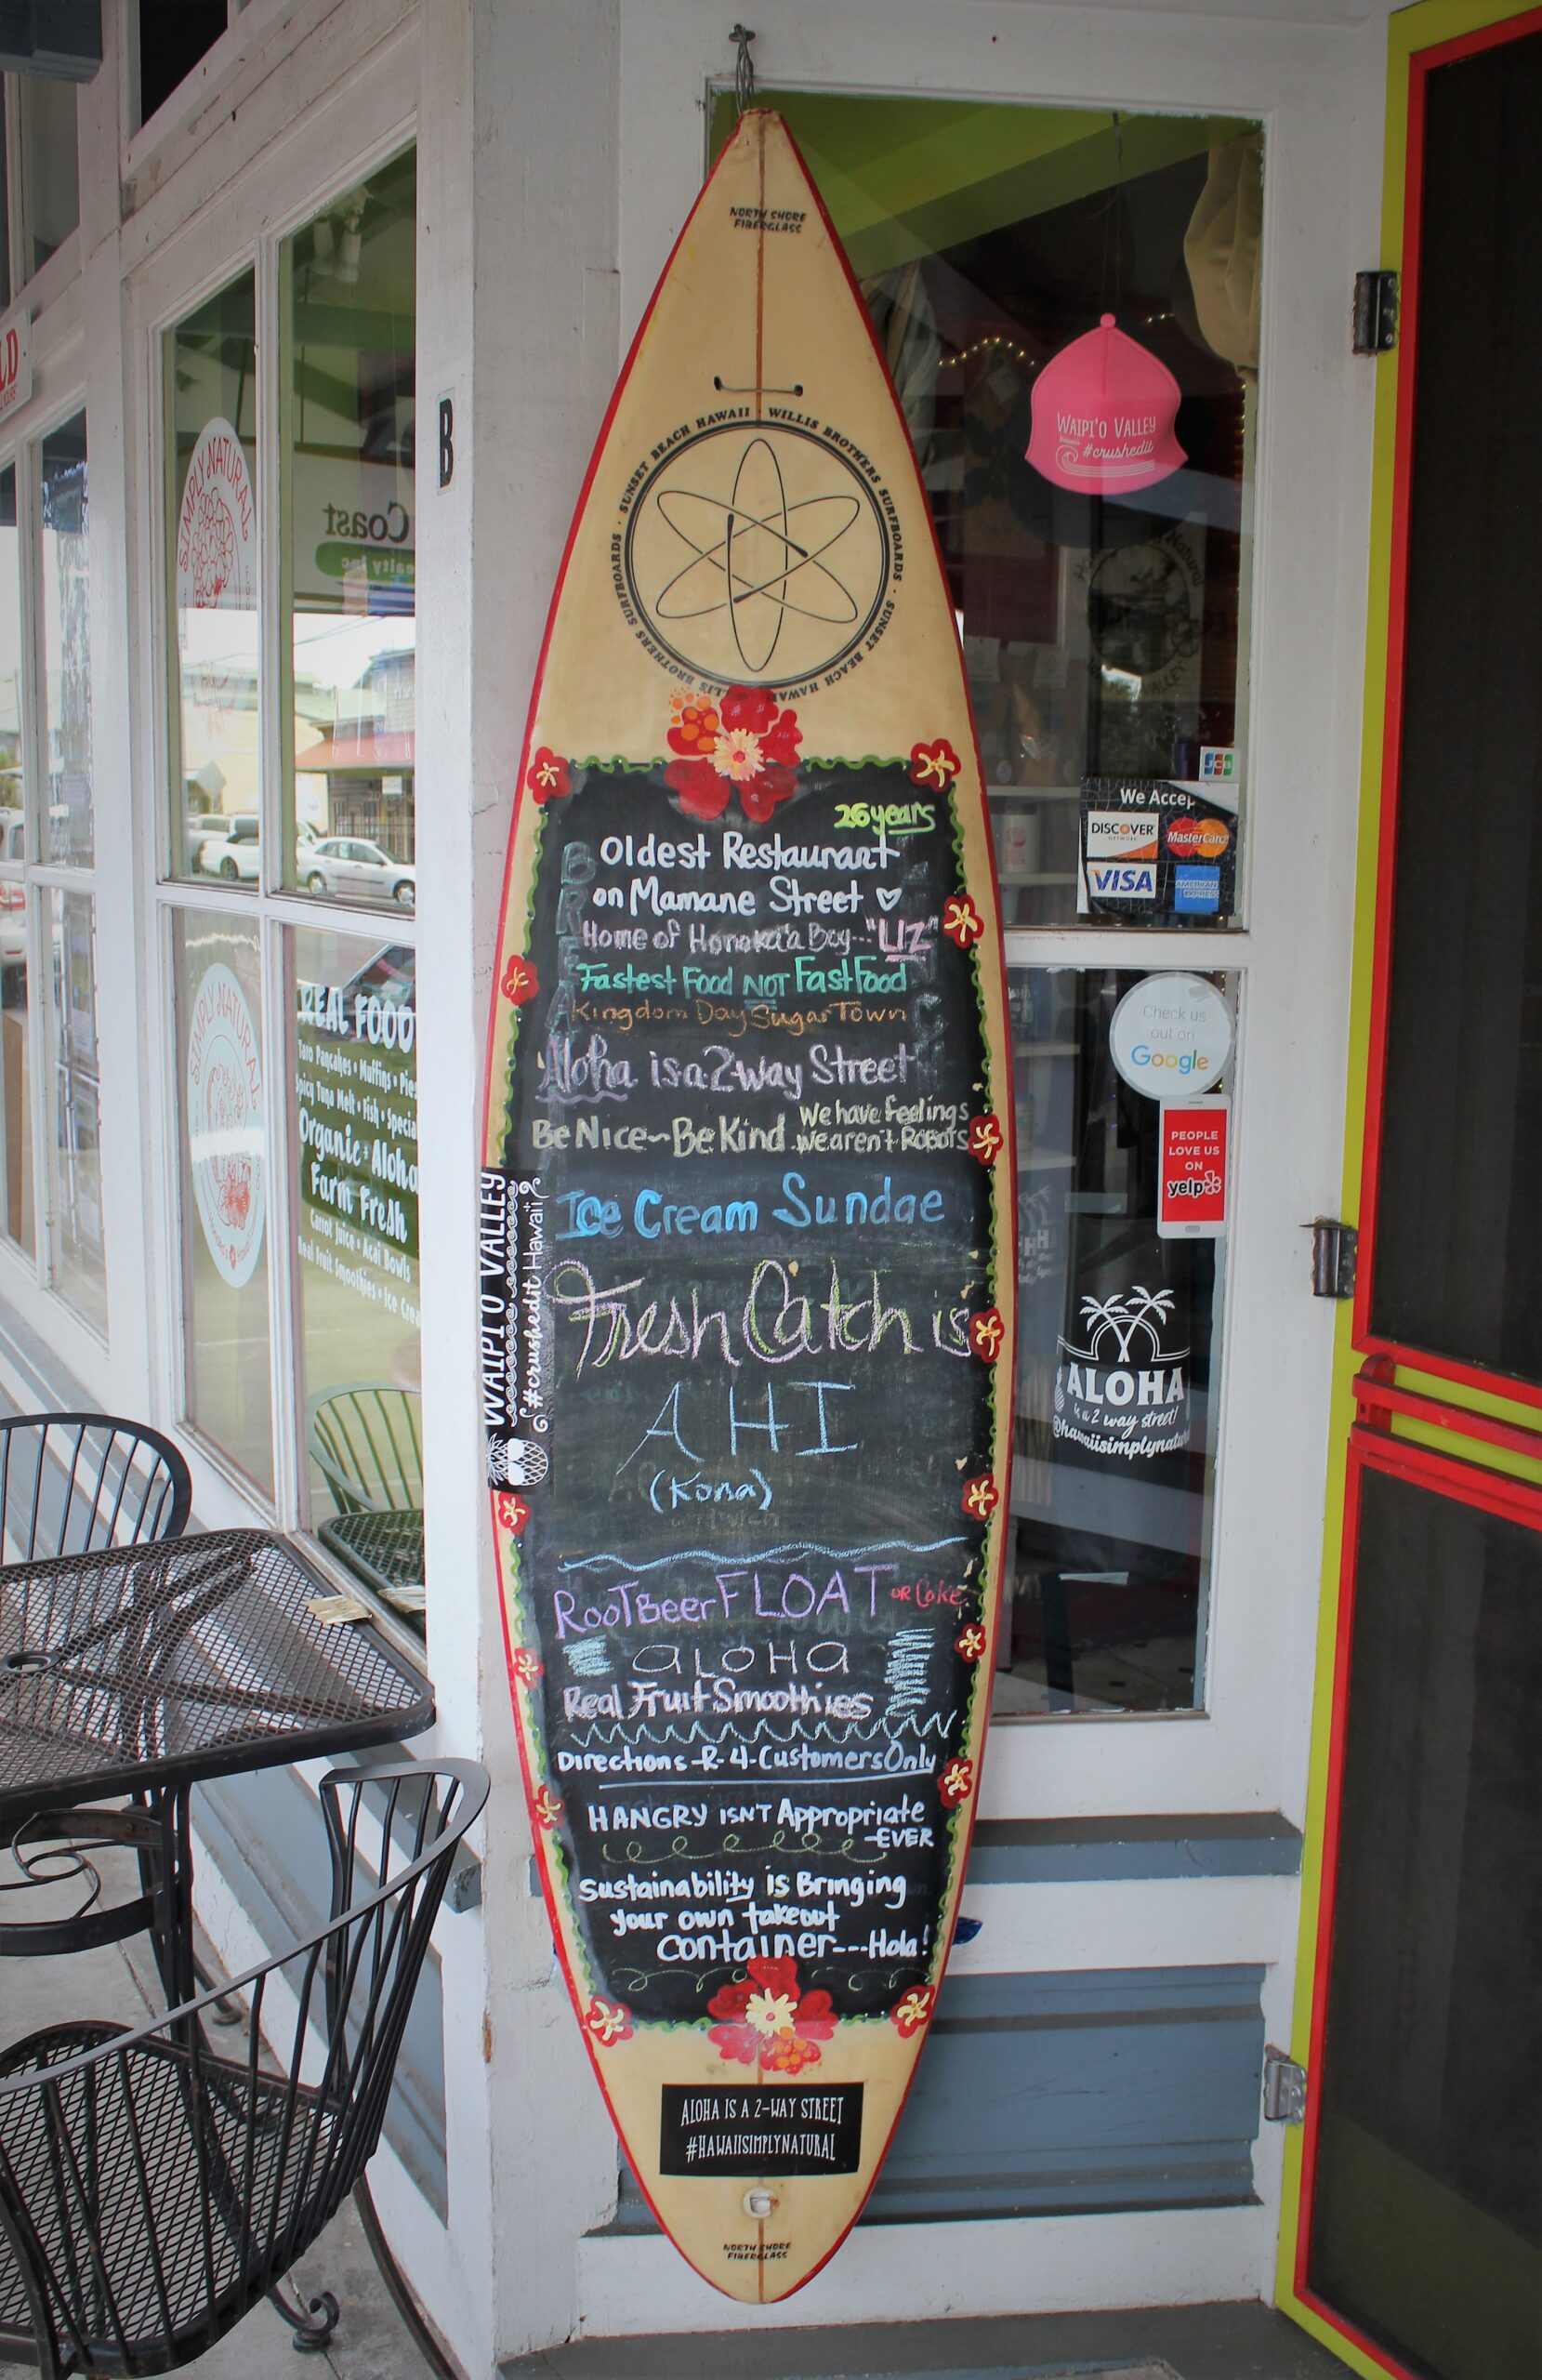 NORTH SHORE
FIBERGLASS
SUNSET BEACH HAWAII · WILLIS BROTHERS SURFBOARDS · SUNSET BEACH HAWAII · WILLIS BROTHERS SURFBOARDS ·
26 years
Oldest Restaurant
on Mamane Street ♡
Home of Honoka'a Boy... "LIZ"
Fastest Food NOT Fast Food
Kingdom Day Sugar Town
Aloha is a 2 way Street
Be Nice ~ Be Kind
We have feelings
We aren't Robots
Ice Cream Sundae
Fresh Catch is
AHI
(Kona)
RooT Beer FLOAT OR Coke
aLOHa
Real Fruit Smoothies
Directions -R- 4- Customers Only
HANGRY ISN'T Appropriate
-EVER
Sustainability is Bringing
your own takeout
container---Hola!
WAIPI'O VALLEY
#crushedit Hawaii
ALOHA IS A 2-WAY STREET
#HAWAIISIMPLYNATURAL
NORTH SHORE
FIBERGLASS
B
SIMPLY NATURAL
Coast
ealty Inc
SIMPLY NATURAL
REAL FOOD
Taro Pancakes • Muffins • Pies
picy Tuna Melt • Fish • Specia
Organic • Aloha
Farm Fresh
Carrot Juice • Acai Bowls
eal Fruit Smoothies • Ice Crea
LD
WAIPI'O VALLEY
Hawaii
#crushedit
Natural
VALLEY
JCB
We Accep
DISCOVER
NETWORK
MasterCard
VISA
AMERICAN
EXPRESS
Check us
out on
Google
PEOPLE
LOVE US
ON
yelp
ALOHA
is a 2 way street!
@hawaiisimplynatu